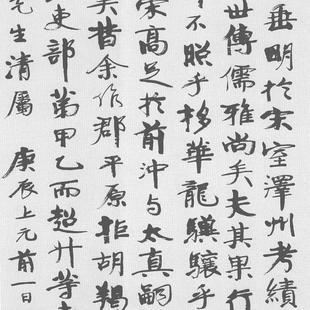 垂明於宋室澤州考績
世傳儒雅尚矣夫其果行
不照乎移華龍驥驤乎
策高足於前沖与太真嗣
矣昔余作郡平原拒胡羯
吏部第甲乙而超升等
生清屬 庚辰上元前一日